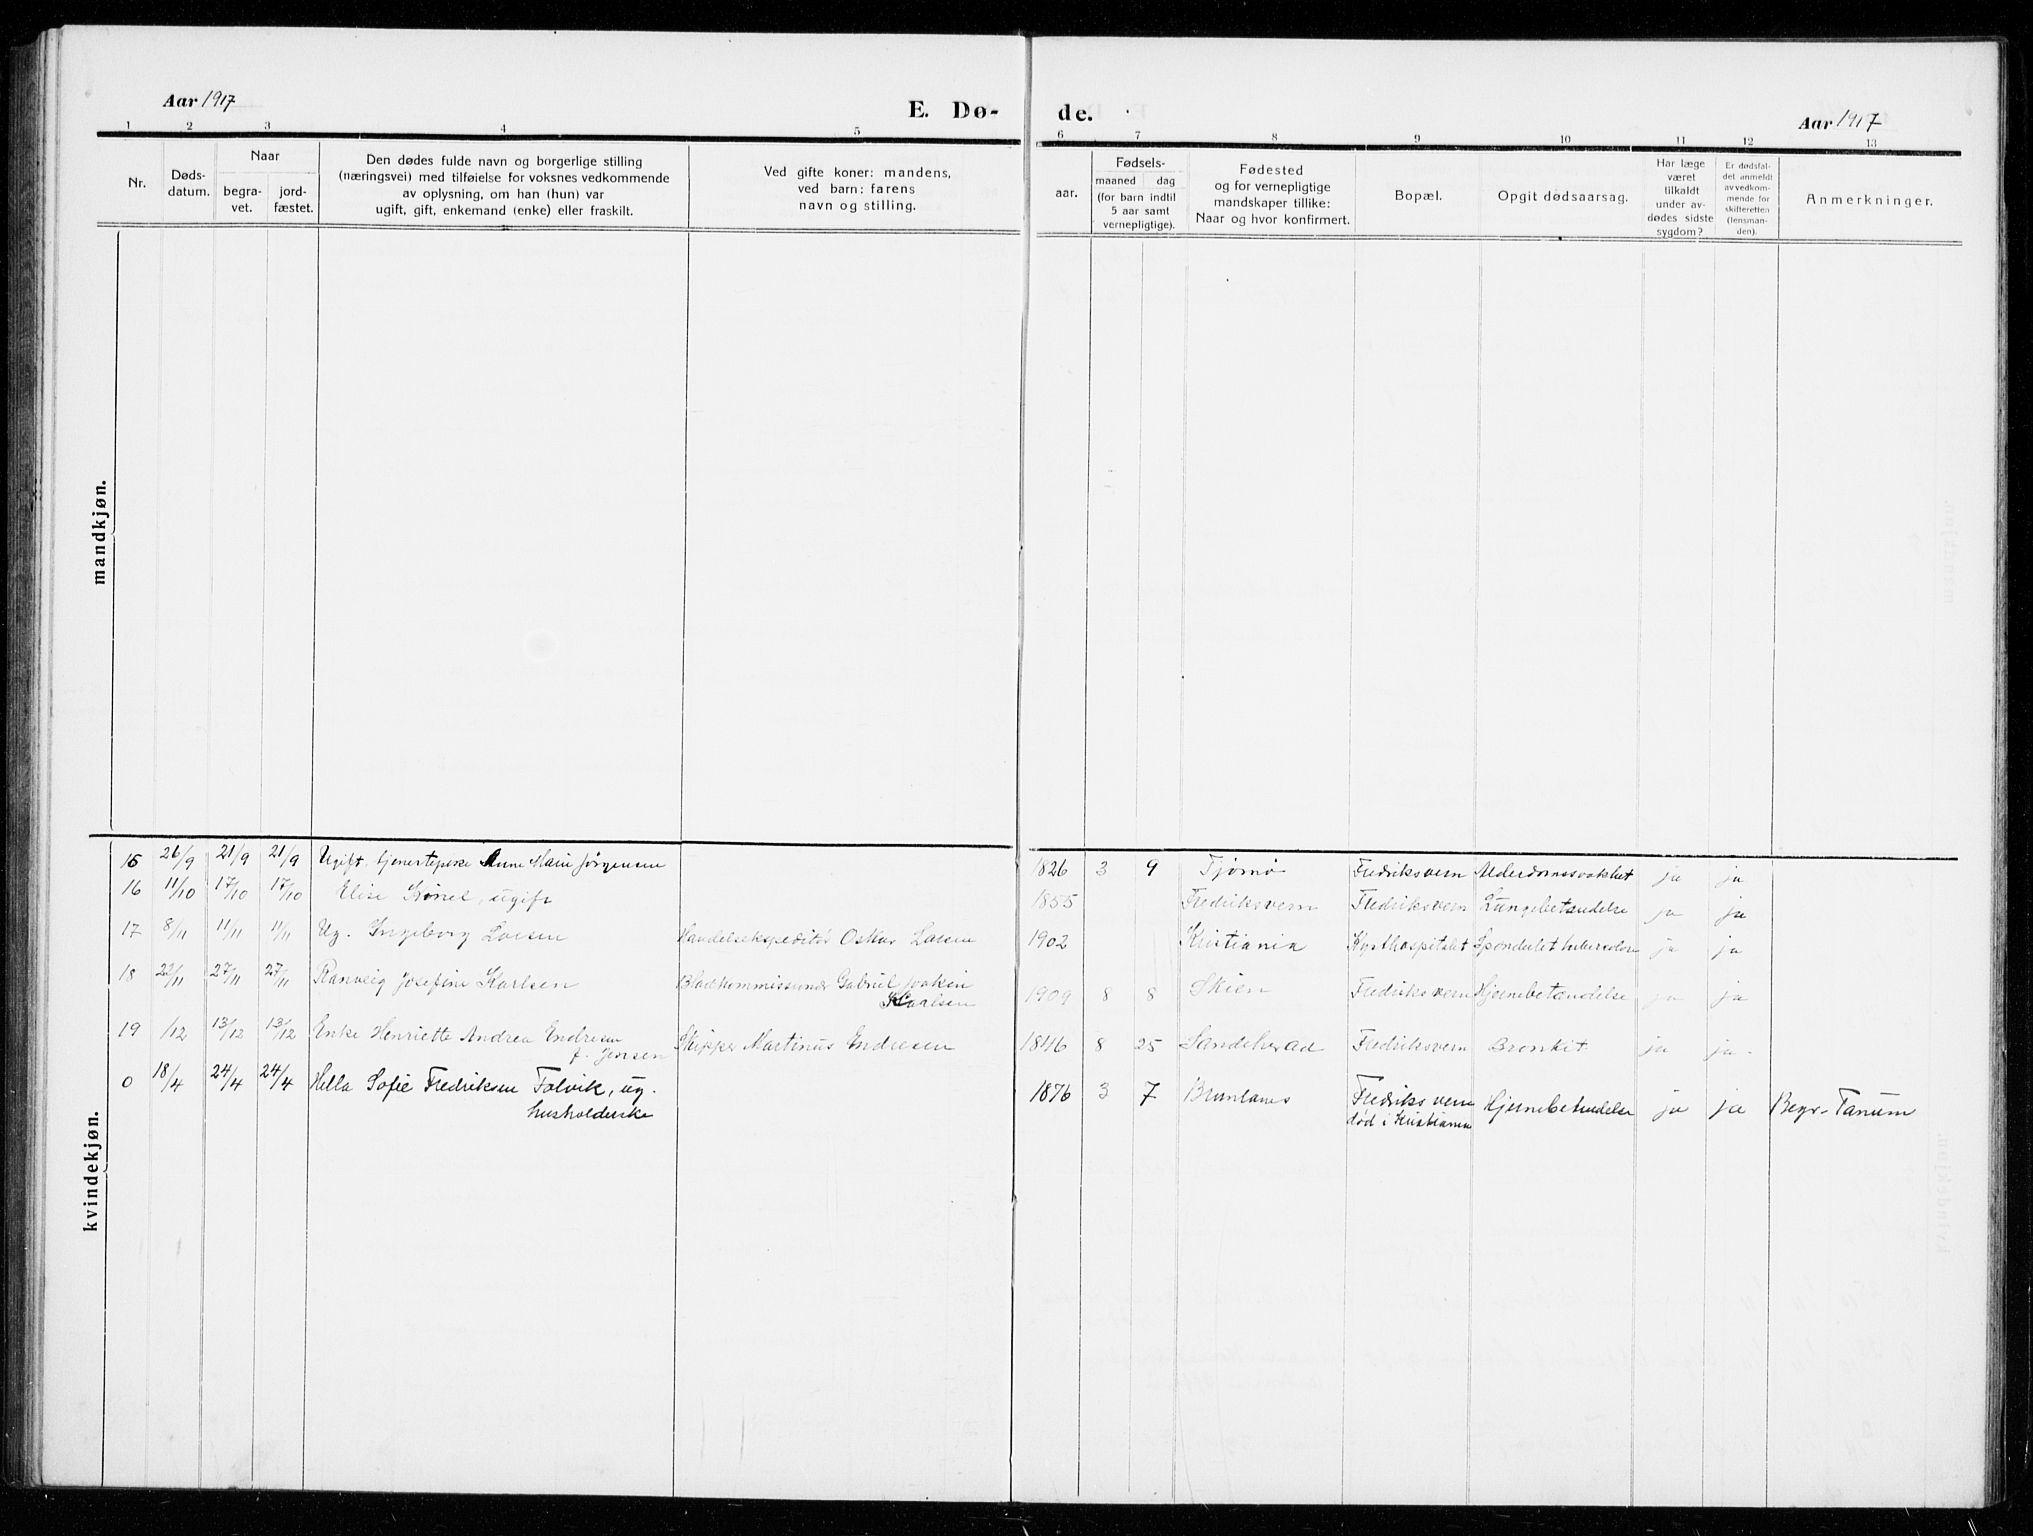 Aar 1917
E. Dø-
de.
Aar 1917
1 2 3 4 5 6 7 8 9 10 11 12 13
Nr.
Døds-
datum.
Naar
begra-
vet.
jord-
fæstet.
Den dødes fulde navn og borgerlige stilling
(næringsvei) med tilføielse for voksnes vedkommende
av oplysning, om han (hun) var
ugift, gift, enkemand (enke) eller fraskilt.
Ved gifte koner: mandens,
ved barn: farens
navn og stilling.
Fødsels-
aar.
maaned dag
(for barn indtil
5 aar samt
vernepligtige).
Fødested
og for vernepligtige
mandskaper tillike:
Naar og hvor konfirmert.
Bopæl.
Opgit dødsaarsag.
Har læge
været
tilkaldt
under av-
dødes sidste
sygdom?
Er dødsfal-
det anmeldt
av vedkom-
mende for
skifteretten
(lensman-
den).
Anmerkninger.
mandkjøn.
kvindekjøn.
15 26/9 21/9 21/9 Ugift, tjenestepike Anne Marie Jørgensen 1826 3 9 Tjømø Fredriksvern Alderdomssvakhet ja ja
16 11/10 17/10 17/10 Elise Grønel, ugift 1855 Fredriksvern Fredriksvern Lungebetændelse ja ja
17 8/11 11/11 11/11 Ug. Ingeborg Larsen Handelsekspeditør Oskar Larsen 1902 Kristiania Kysthospitalet ja ja
18 22/11 27/11 27/11 Ranveig Josefine Karlsen Bladkommissionær Gabriel Joakin
Karlsen 1909 8 8 Skien Fredriksvern Hjernebetændelse ja ja
19 /12 13/12 13/12 Enke Henriette Andrea Endresen
f. Jensen Skipper Martinus Endresen 1846 8 25 Sandeherad Fredriksvern Bronkit ja ja
0 18/4 24/4 24/4 Hella Sofie Fredriksen Folvik, ug.
husholderske 1876 3 7 Brunlanes Fredriksvern
død i Kristiania Hjernebetændelse ja ja Begr. Tanum